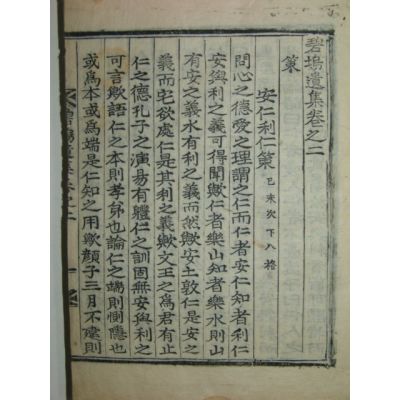 碧塢遺集卷之二
策
安仁利仁策 己未次下八格
問心之德愛之理謂之仁而仁者安仁知者利仁
安與利之義可得聞歟仁者樂山知者樂水則山
有安之義水有利之義而然歟安土敦仁是安之
義而宅欲處仁是其利之義歟文王之爲君有止
仁之德孔子之演易有軆仁之訓固無安與利之
可言歟語仁之本則孝弟也論仁之端則惻隱也
或爲本或爲端是仁知之用歟顔子三月不違則